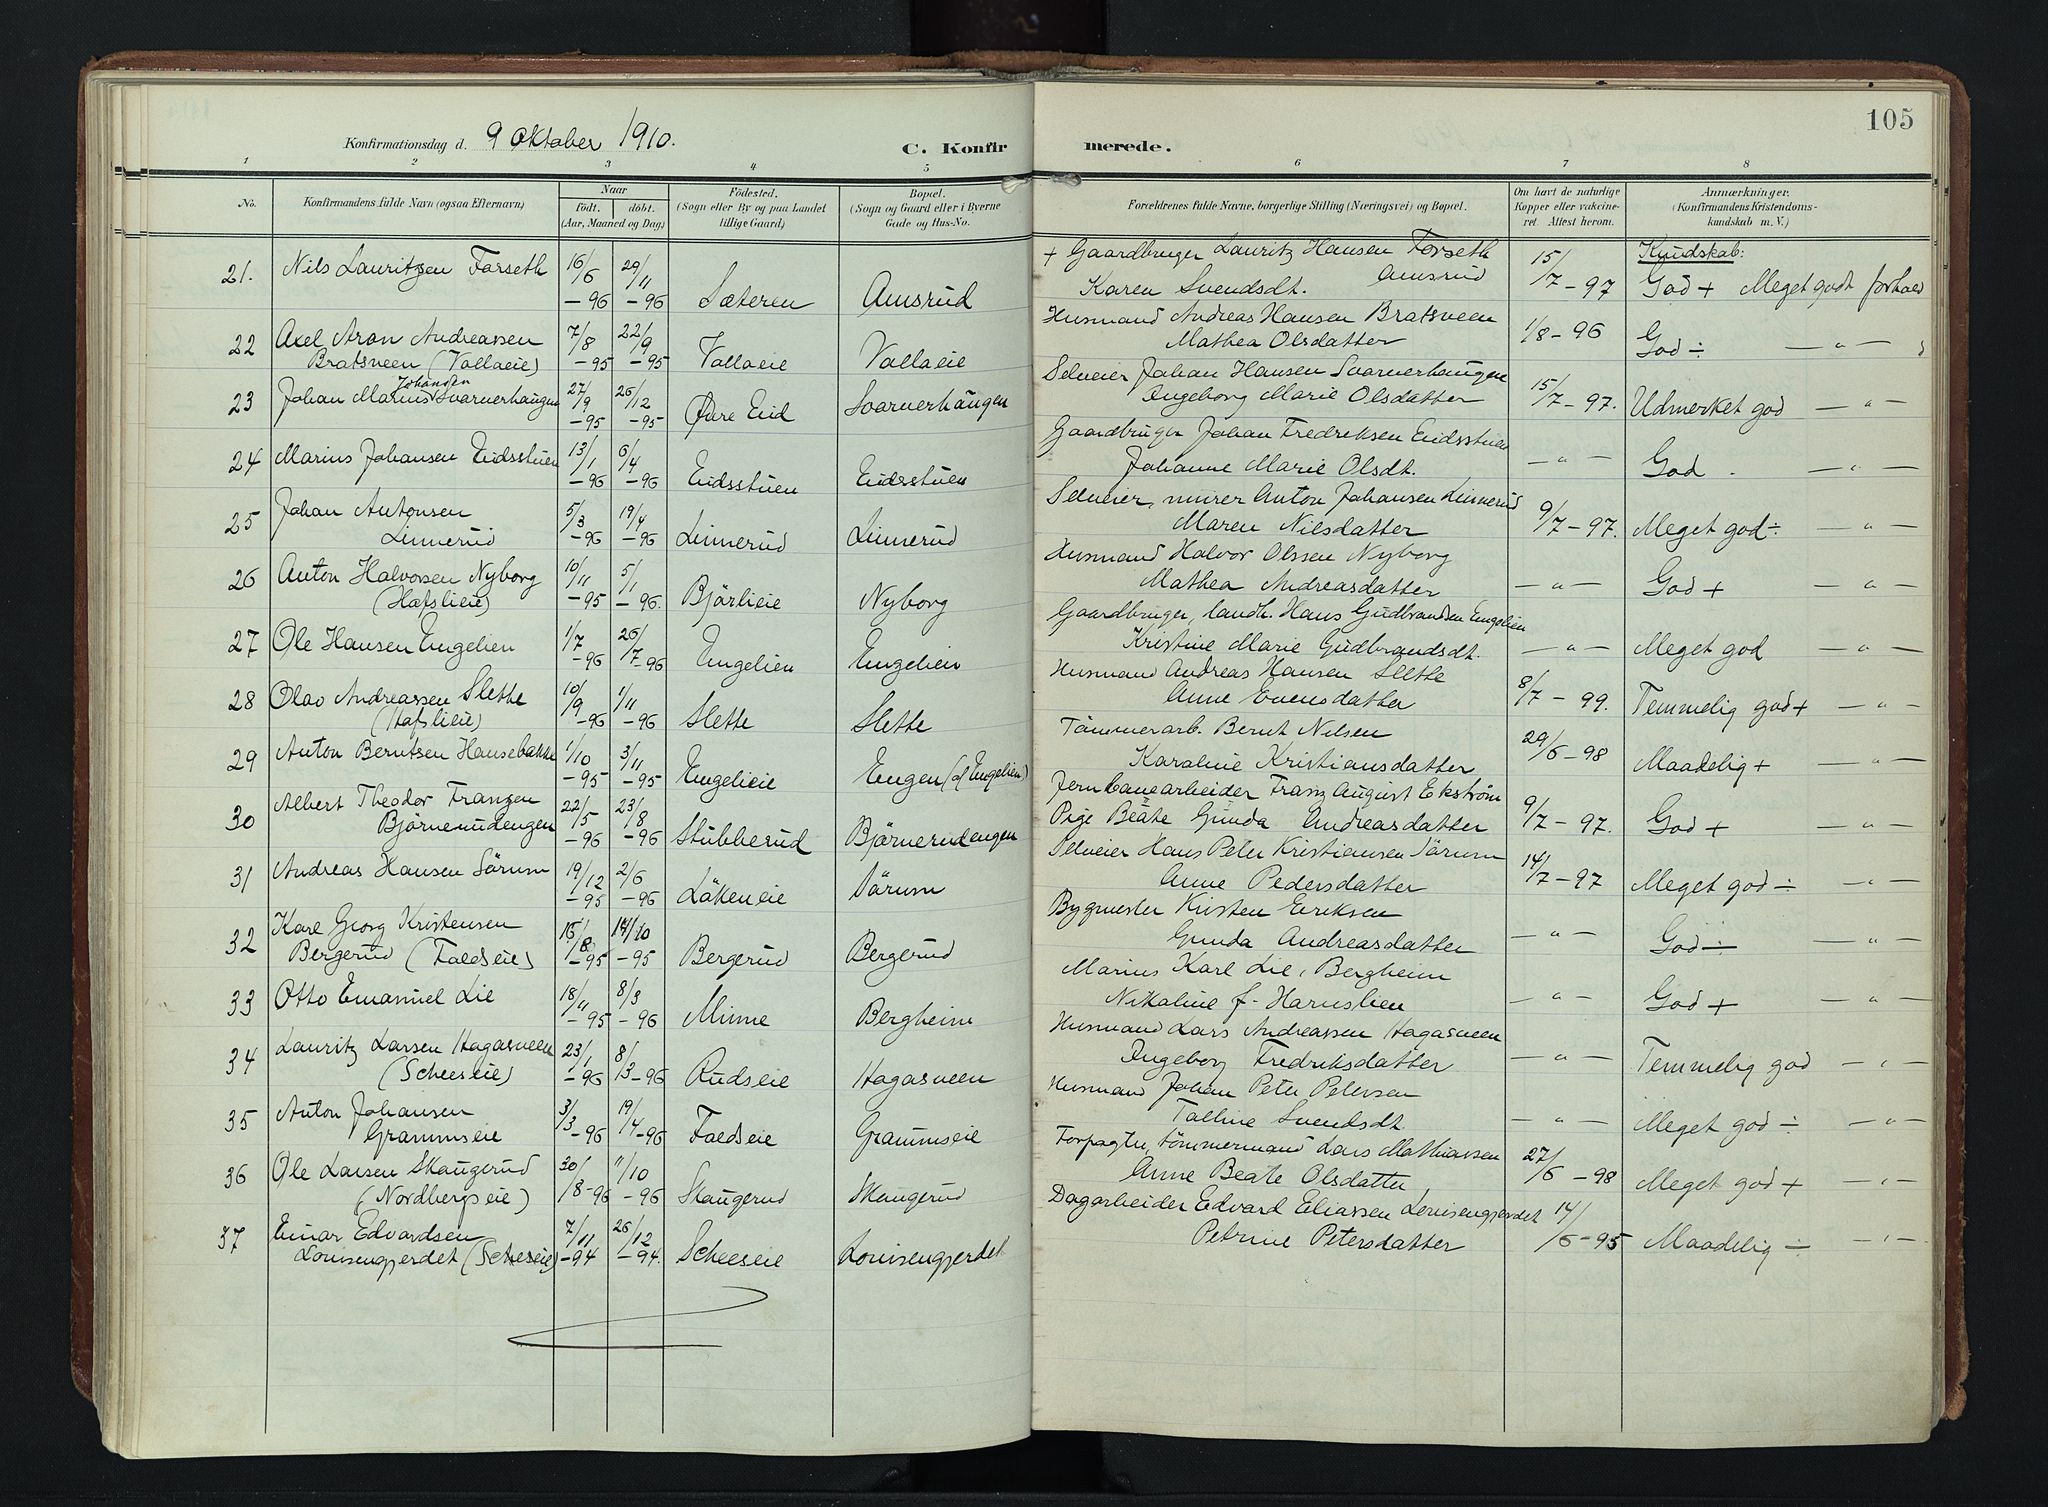 105
Konfirmationsdag d. 9 Oktober 1910.
C. Konfirmerede.
1 2 3 4 5 6 7 8
No.
Konfirmandens fulde Navn (ogsaa Efternavn)
Naar
födt. döbt.
(Aar, Maaned og Dag)
Födested.
(Sogn eller By og paa Landet
tillige Gaard)
Bopæl.
(Sogn og Gaard eller i Byerne
Gade og Hus-No.
Forældrenes fulde Navne, borgerlige Stilling (Næringsvei) og Bopæl.
Om havt de naturlige
Kopper eller vakcine-
ret. Attest herom.
Anmærkninger.
(Konfirmandens Kristendoms-
kundskab m. V.)
21. Nils Lauritzen Forseth 16/6 -96 29/11 -96 Sæteren Amsrud + Gaardbruger Lauritz Hansen Forseth Amsrud
Karen Svendsdt. 15/7-97 Kundskab: God + Meget godt forhold
22 Axel Aron Andreassen 7/8 -95 22/9 -95 Vallaeie Vallaeie Husmand Andreas Hansen Bratsveen
Bratsveen (Vallaeie) Mathea Olsdatter 1/8-96 God ÷ — " —
23 Johan Marius Johansen Svarverhaugen 27/9 -95 26/12 -95 Øvre Eid Svarverhaugen Selveier Johan Hansen Svarverhaugen
Ingeborg Marie Olsdatter 15/7-97. Udmerket god — " —
24 Marius Johansen Eidsstuen 13/1 -96 6/4 -96 Eidsstuen Eidsstuen Gaardbruger Johan Fredriksen Eidsstuen
Johanne Marie Olsdt. — " — God — " —
25 Johan Antonsen 5/3 -96 19/4 -96 Linnerud Linnerud Selveier, murer Anton Johansen Linnerud
Linnerud Maren Nilsdatter 9/7-97. Meget god ÷ — " —
26 Anton Halvorsen Nyborg 10/11 -95 5/1 -96. Bjørlieie Nyborg Husmand Halvor Olssen Nyborg
(Hafslieie) Mathea Andreasdatter — " — God + — " —
27 Ole Hansen Engelien 1/7 -96 26/7-96 Engelien Engelien Gaardbruger, landh. Hans Gudbrandsen Engelien
Kristine Marie Gudbrandsdt. — " — Meget god — " —
28 Olav Andreassen Slette 10/9 -96 1/11 -96 Slette Slette Husmand Andreas Hansen Slette
(Hafslieie) Anne Evensdatter 8/7-99. Temmelig god + — " —
29 Anton Berntsen Hansebakke 1/10 -95 3/11 -95 Engelieie Engen (of Engelien) Tömmerarb. Bernt Nilsen
Karoline Kristiansdatter 29/6-98 Maadelig + — " —
30 Albert Theodor Franzen 22/5 -96 23/8 -96 Stubberud Björnerudengen Jernbanearbeider Franz August Ekström
Björnerudengen Pige Beate Gunda Andreasdatter 9/7-97. God + — " —
31 Andreas Hansen Sörum 19/12 -95 2/6 -96 Läkeneie Sörum Selveier Hans Peter Kristiansen Sörum
Anne Pedersdatter 14/7-97 Meget god ÷ — " —
32 Karl Georg Kristensen 16/8 -95 14/10 -95 Bergerud Bergerud Bygmester Kristen Eriksen
Bergerud (Faldseie) Gunda Andreasdatter — " — God ÷ — " —
33 Otto Emanuel Lie 18/11 -95 8/3 -96 Minne Bergheim Marius Karl Lie, Bergheim
Nikoline f. Harnslien — " — God + — " —
34 Lauritz Larsen Hagasveen 23/1 -96 8/3-96 Rudseie Hagasveen Husmand Lars Andreassen Hagasveen
(Scheeseie) Ingeborg Fredriksdatter — " — Temmelig god — " —
35 Anton Johansen 3/3 -96 19/4-96 Faldseie Grammseie Husmand Johan Peter Petersen
Grammseie Talline Svendsdt — " — Meget god ÷ — " —
36 Ole Larsen Skaugerud 30/8-96 11/10 -96 Skaugerud Skaugerud Forpagter, tömmermand Lars Mathiassen
(Nordbergseie) Anne Beate Olsdatter 27/6-98 Meget god + — " —
37 Einar Edvardsen 7/11 -94 26/12 -94. Scheeseie Louisengjerdet Dagarbeider Edvard Eliassen Louisengjerdet
Louisengjerdet (Scheseie) Petrine Petersdatter 14/6-95 Maadelig ÷ — " —